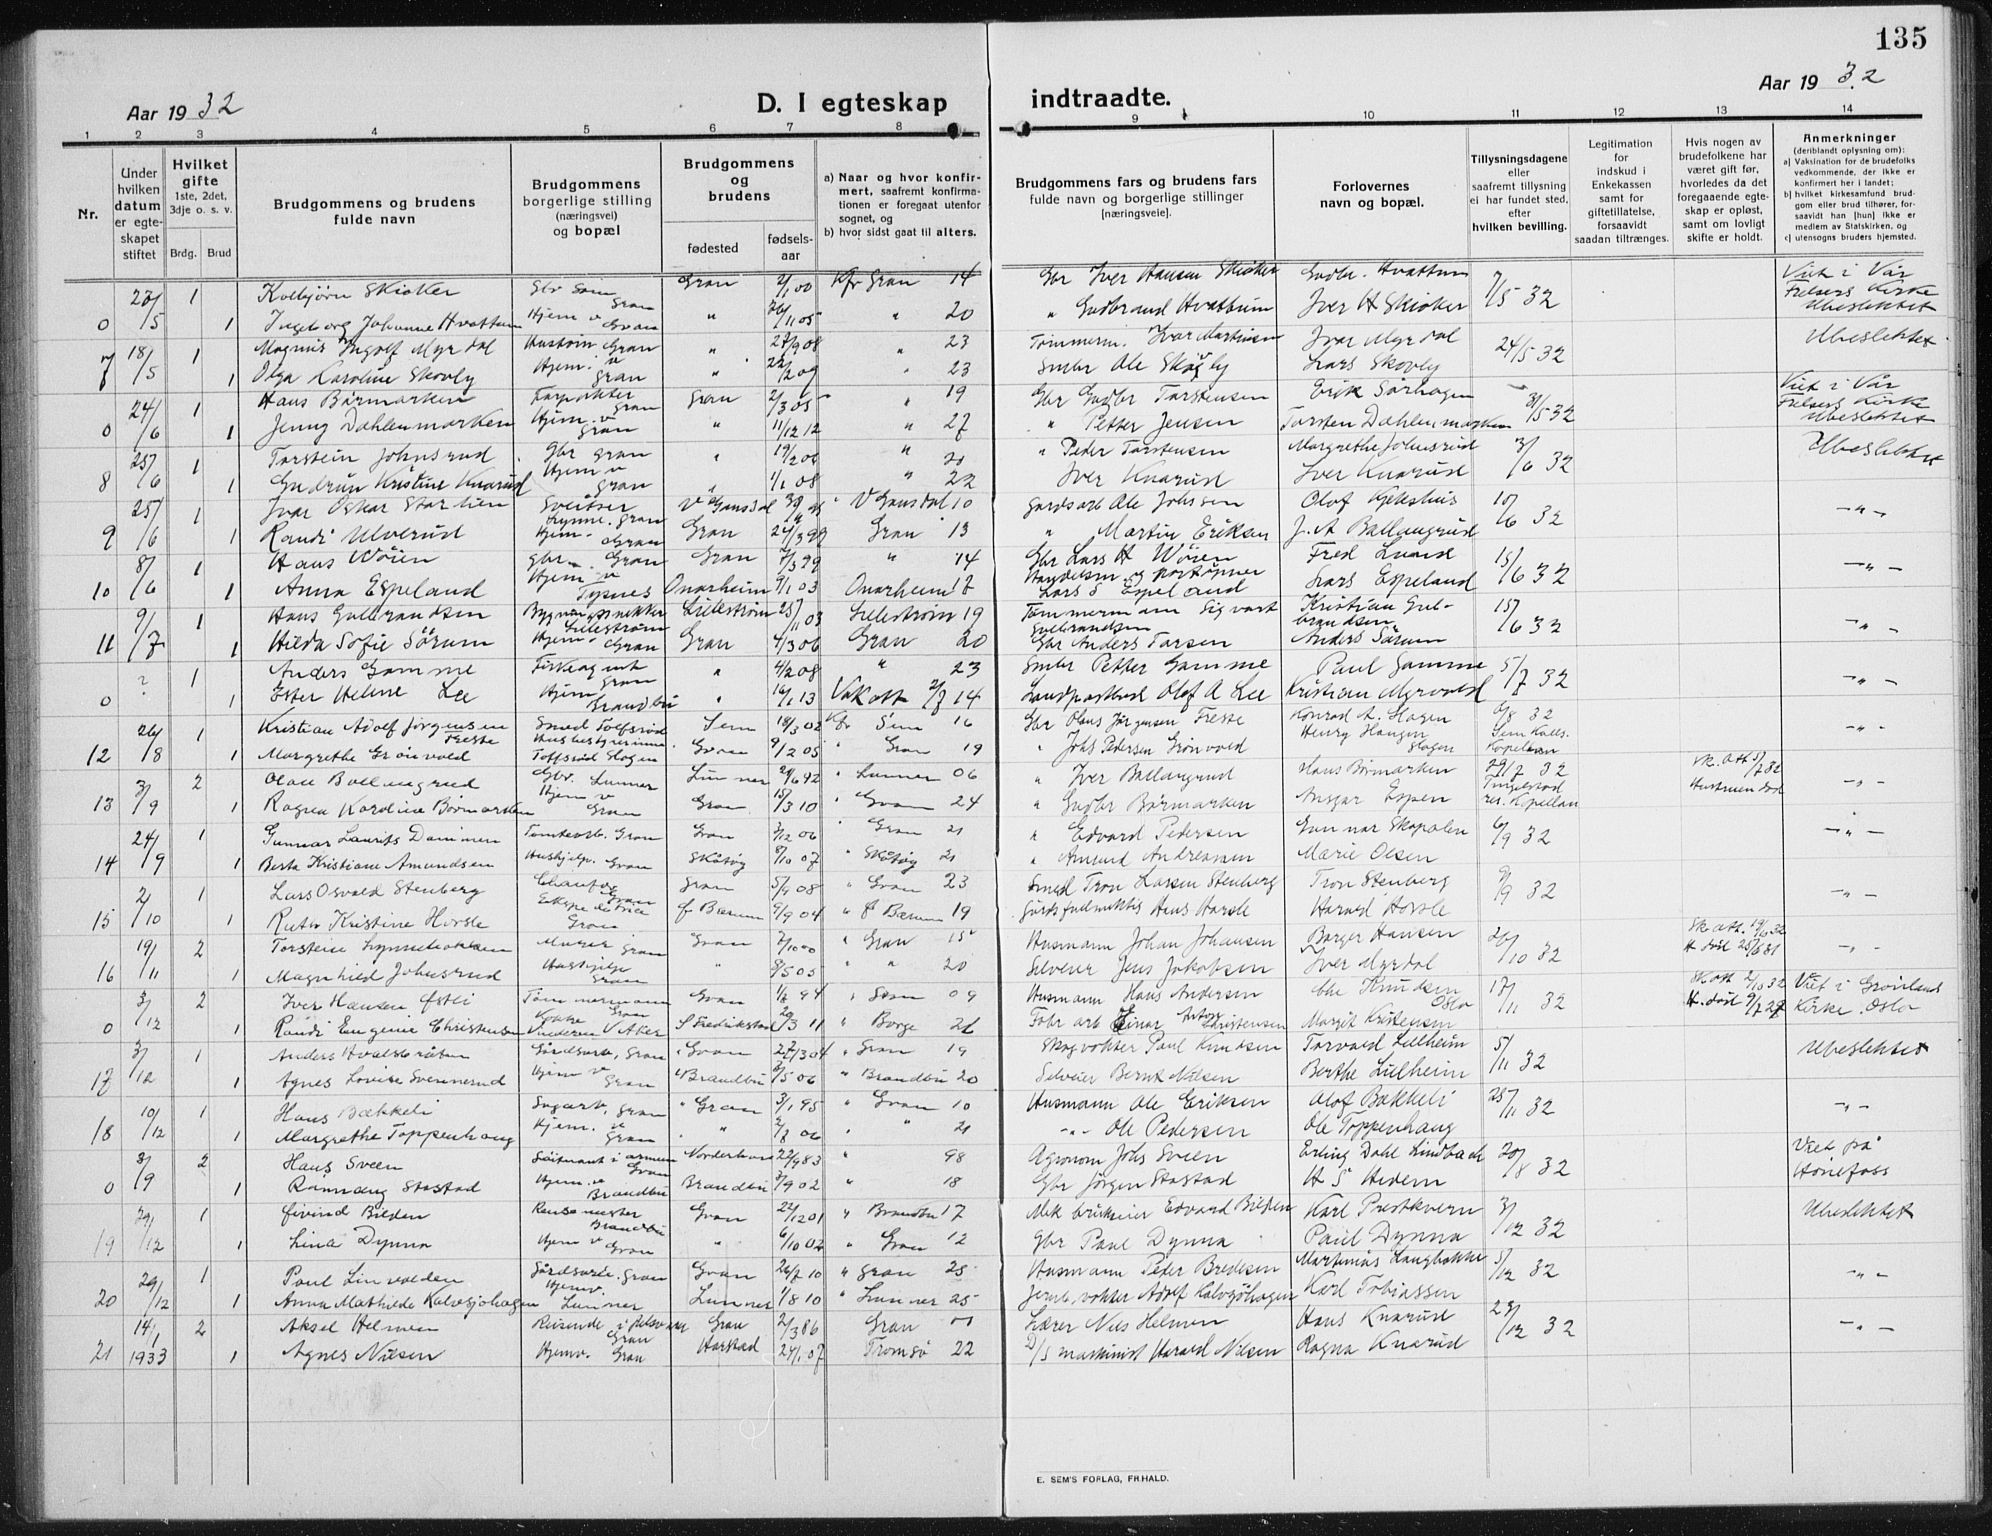 135
Aar 19 32
D. I egteskap indtraadte.
Aar 19 32
1 2 3 4 5 6 7 8 9 10 11 12 13 14
Nr.
Under hvilken datum er egteskapet stiftet
Hvilket gifte 1ste, 2det, 3dje o. s. v.
Brdg. Brud
Brudgommens og brudens fulde navn
Brudgommens borgerlige stilling (næringsvei) og bopæl
Brudgommens og brudens
fødested fødselsaar
a) Naar og hvor konfirmert, saafremt konfirmationen er foregaat utenfor sognet, og
b) hvor sidst gaat til alters.
Brudgommens fars og brudens fars fulde navn og borgerlige stillinger [næringsveie].
Forlovernes navn og bopæl.
Tillysningsdagene eller saafremt tillysning ei har fundet sted, efter hvilken bevilling.
Legitimation for indskud i Enkekassen samt for giftetillatelse, forsaavidt saadan tiltrænges.
Hvis nogen av brudefolkene har været gift før, hvorledes da det foregaaende egteskap er opløst, samt om lovligt skifte er holdt.
Anmerkninger (deriblandt oplysning om):
a) Vaksination for de brudefolks vedkommende, der ikke er konfirmert her i landet;
b) hvilket kirkesamfund brudgom eller brud tilhører, forsaavidt han [hun] ikke er medlem av Statskirken, og
c) utensogns bruders hjemsted.
Kolbjørn Skiaker Gbr Søn Gran Gran 2/1 00 Kfr Gran 14 Gbr Iver Hansen Skiaker Gudbr. Hvattum 7/5 32 Viet i Vår Frelsers Kirke
0 /5 1 Ingeborg Johanne Hvattum Hjem v Gran " " 20 " Gudbrand Hvattum Iver H Skiaker Ubeslektet
18/5 1 Magnus Ingolf Myrdal Gran " 27/9 08 " 23 Tømmerm. Ivar Martinsen Ivar Myrdal 24/5 32 Ubeslektet
7 1 Olga Karoline Skovly Hjem. v Gran " " 23 Smbr Ole Skovly Lars Skovly
24/6 1 Hans Børmarken Forpakter Gran Gran 2/3 05 " 19 Gbr Gudbr Torstensen Erik Sørhagen 31/5 32 Viet i Vår Frelsers Kirke
0 1 Jenny Dahlenmarken Hjem. v Gran " 11/12 12 " 27 " Petter Jensen Torsten Dahlenmarken Ubeslektet
25/6 1 Torstein Johnsrud Gbr Gran " 19/2 06 " 20 " Peder Torstensen Margrethe Johnsrud 3/6 32 Ubeslektet
8 1 Gudrun Kristine Knarud Hjem v Gran " 1/1 08 " 22 Iver Knarud Iver Knarud
25/6 1 Ivar Oskar Starlien Sveitser Lynne. Gran V Gausdal V Gausdal 10 Gårdsarb Ole Johnsen Olof Gjekshus 10/6 32 -"-
9 1 Randi Ulverud Hjem. Gran Gran 24/3 99 Gran 13 " Martin Eriksen J. A Ballangrud
1 Hans Wøien Gbr. Gran Gran 7/3 99 " 14 Gbr Lars H Wøien Fred Lund 15/6 32 -"-
10 /6 1 Anna Espeland Hjem v Tysnes Onarheim 9/1 03 Onarheim 18 Handelsm. og poståpner Lars S Espeland Lars Espeland
9/7 1 Hans Gulbrandsen Bygningssnekker Lillestrøm Lillestrøm 25/11 03 Lillestrøm 19 Tømmermann Sigvart Gulbrandsen Kristian Gulbrandsen 15/6 32 -"-
11 1 Hilda Sofie Sørum Hjem v Gran Gran 4/3 06 Gran 20 Gbr Anders Larsen Anders Sørum
? 1 Anders Gamme Gran " 4/2 08 " 23 Smbr Petter Gamme Paul Gamme 5/7 32 -"-
0 1 Ester Helene Lee Hjem Brandbu " 16/1 13 Vak att 2/7 14 Landpostbud Olof A Lee Kristian Myrvold
26/8 1 Kristian Adolf Jørgensen Freste Smed Tolfsrød Sem 18/3 02 Kfr Sem 16 Gbr Olaus Jørgensen Freste Konrad A. Hagen 6/8 32 Sem Kalls. Kapellan -"-
12 1 Margrethe Grønvold Husbestyrerinne. Tolfsrød Slagen Gran 9/2 05 " Gran 19 " Johs Pedersen Grønvold Henry Haugen Slagen
3/9 2 Olav Ballangrud Gbr. Lunner Lunner 24/6 92 " Lunner 06 " Iver Ballangrud Hans Børmarken 29/7 32 Tingelstad res. Kapellan Sk. att 5/7 32 Hustruen død -"-
13 1 Ragna Karoline Børmarken Hjem v Gran Gran 15/3 10 " Gran 24 " Gudbr Børmarken Ansgar Espen
24/9 1 Gunnar Laurits Dammen Tomtearb. Gran Gran 3/12 06 " Gran 21 " Edvard Pedersen Gunnar Skapalen 6/9 32 -"-
14 1 Berta Kristiane Amundsen Hushjelp. Gran Skåtøy 8/10 07 " Skåtøy 21 " Amund Andreassen Marie Olsen
2/10 1 Lars Osvald Stenberg Chaufør Gran Gran 5/9 08 " Gran 23 Smed Tron Larsen Stenberg Tron Stenberg 9/9 32 -"-
15 1 Ruth Kristine Horsle Gran f Bærum 9/9 04 " f Bærum 19 Gårdsfullmektig Hans Horsle Harald Horsle
19/11 2 Torstein Murer Gran Gran 7/10 00 " Gran 15 Husmann Johan Johansen Borger Hansen 26/10 32 Sk. att. 19/6 32 H. død 25/5 31 -"-
16 1 Magnhild Johnsrud Hushjelp Gran " 9/5 05 " " 20 Selveier Jens Jakobsen Iver Myrdal
3/12 2 Iver Hansen Østli Tømmermann Gran Gran 94 " Gran 09 Husmann Hans Andersen Ole Knudsen Oslo 17/11 32 Sk att 2/10 32 H. død 9/7 27 Viet i Grønlands Kirke, Oslo
0 1 Randi Eugenie Christensen V Aker S Fredrikstad 29/3 11 " Borge 26 Fabr arb Einar Anton Christensen Margit Kristensen
3/12 1 Anders Hvalsbråten Gårdsarb, Gran " Gran 04 " Gran 19 Skogvokter Paul Knudsen Torvald Lilheim 5/11 32 Ubeslektet
17 1 Agnes Lovise Svennerud Hjem v Gran " Brandbu /5 06 " Brandbu 20 Selveier Bernt Nilsen Berthe Lilheim
10/12 1 Hans Bækkeli Sagarb, Gran " Gran 3/1 95 " Gran 10 Husmann Ole Eriksen Olof Bakkeli 25/11 32 -"-
18 1 Margrethe Toppenhaug Hjem. v Gran " 2/8 06 " " 21 -"- Ole Pedersen Ole Toppenhaug
3/9 2 Hans Sveen Løitnant i armeen Gran Norderhov 22/9 83 " 98 Agronom Johs Sveen Erling Dahl Lindback 20/8 32 Viet på Hønefoss
0 1 Rønnaug Stastad Hjem. v Brandbu Brandbu 3/9 02 " 18 Gbr Jørgen Stastad H S Hedem
29/12 1 Eivind Bilden Rensemester Brandbu Gran 22/12 01 " Brandbu 17 Mek bruksier Edvard Bilden Karl Prestkvern 3/12 32 Ubeslektet
19 1 Lina Dynna Hjem v Gran " 6/10 02 " Gran 12 Gbr Paul Dynna Paul Dynna
29/12 1 Paul Linvolden Gårdsarb. Gran Gran 26/7 10 " Gran 25 Husmann Peter Bredesen Martinius Haugbakke 5/12 32 -"-
20 1 Anna Mathilde Kalvsjøhagen Hjemv. Lunner Lunner 1/8 10 " Lunner 25 Jernb. vokter Adolf Kalvsjøhagen Karl Tobiassen
14/1 2 Aksel Helmen Reisende Gran Gran 2/3 86 Gran 01 Lærer Nils Helmen Hans Knarud 29/12 32 -"-
21 1933 1 Agnes Nilsen Hjemv. Gran Harstad 24/1 07 Tromsø 22 D/S maskinist Harald Nilsen Ragna Knarud
E. SEM'S FORLAG, FR.HALD.